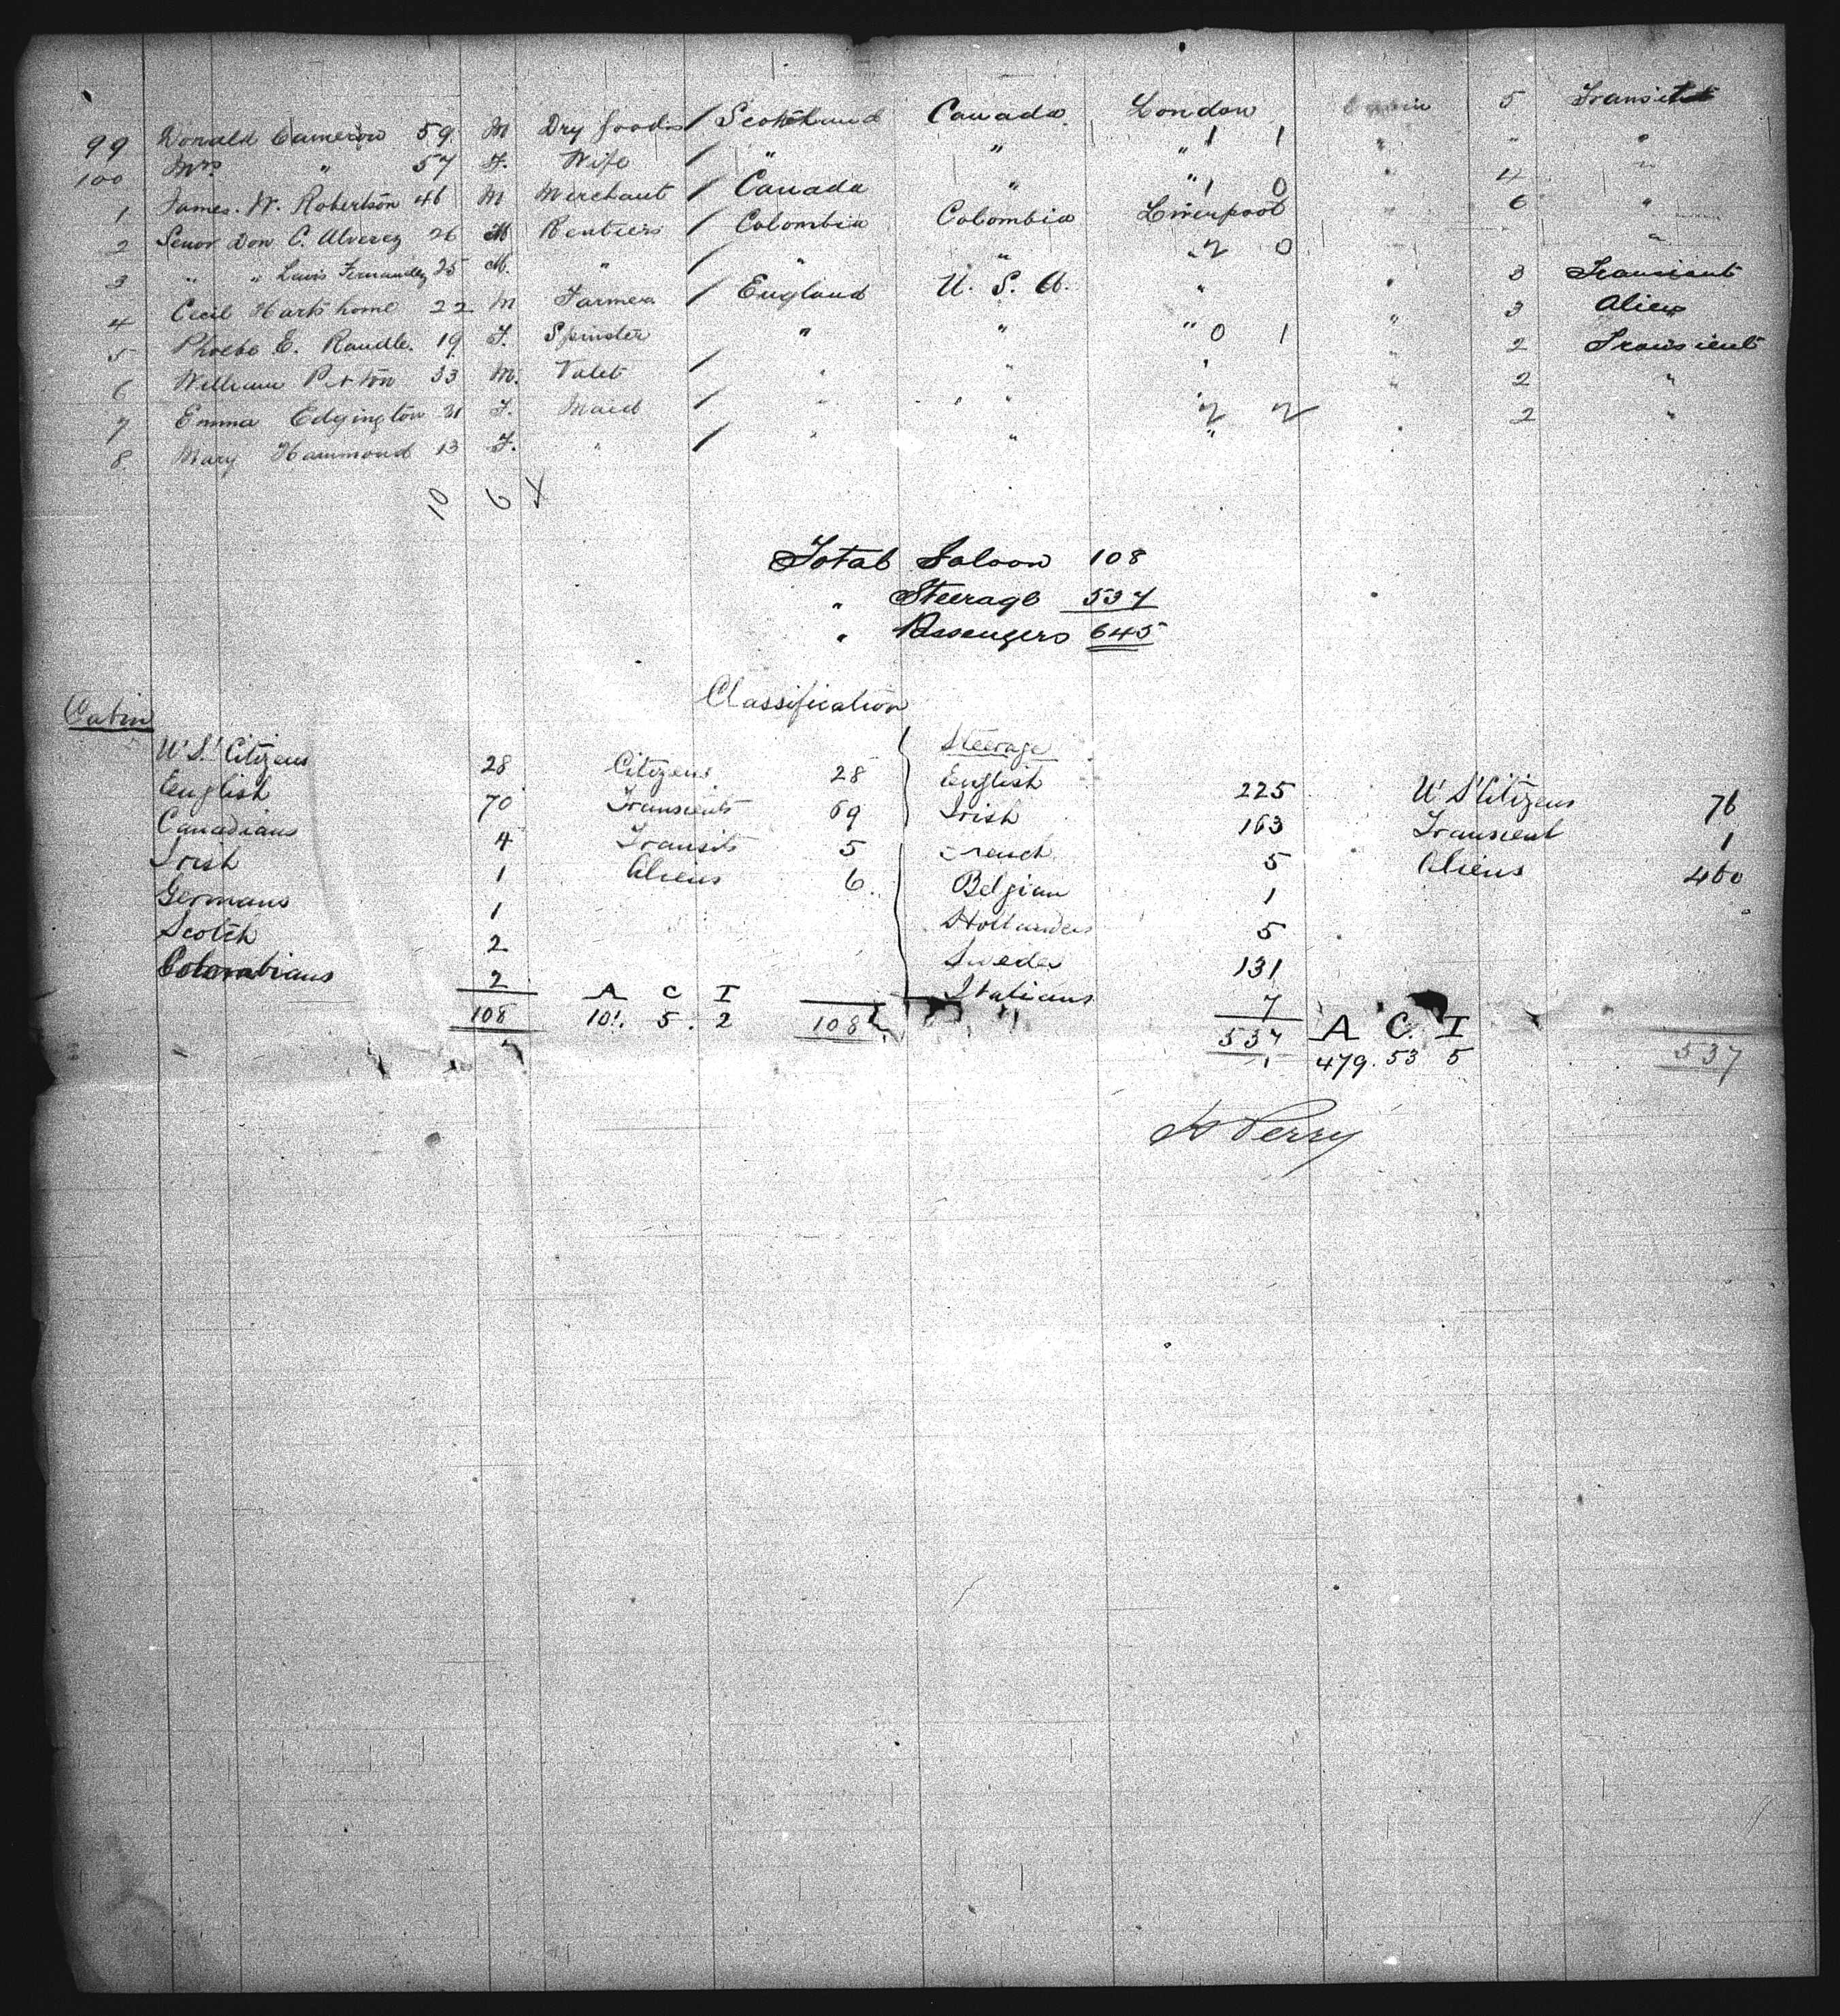 99 Donald Cameron 59 M Dry Goods / Scotland Canada London 5 Transit
100 Mrs " 57 F. Wife / " " " 1 1 " " "
1 James. W. Robertson 46 M Merchant / Canada " " 1 0 " "
2 Senor Don C. Alverez 26 M Rentiers / Colombia Colombia Liverpool " 6 "
3 " " Louis Fernandez 25 M. " / " " " 2 0 "
4 Cecil Hartshorne 22 M Farmer / England U. S. A. " " 3 Transient
5 Phoebe E. Randle. 19 F. Spinster " " " 0 1 " 3 Alien
6 William Pitton 33 M. Valet / " " " " 2 Transient
7 Emma Edgington 31 F. Maid / " " " 2 2 2 "
8 Mary Hammond 13 F. " / " " " " 2 "
10 6 4
Total Saloon 108
" Steerage 537
" Passengers 645
Classification
Cabin
U S. Citizens 28 Citizens 28
English 70 Transients 69
Canadians 4 Transits 5
Irish 1 Aliens 6.
Germans 1
Scotch 2
Colombians 2
A C I
108 101. 5. 2 108
Steerage
English 225 U S Citizens 76
Irish 163 Transient 1
French 5 Aliens 460
Belgian 1
Hollanders 5
Swedes 131
Italians 7
A C. I
537 479. 53 5 537
H Perry